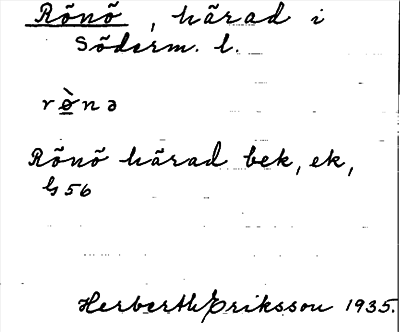 Rönö, härad i
Söderm. l.
rø̀nə
Rönö härad bek, ek,
56
Herberth Eriksson 1935.